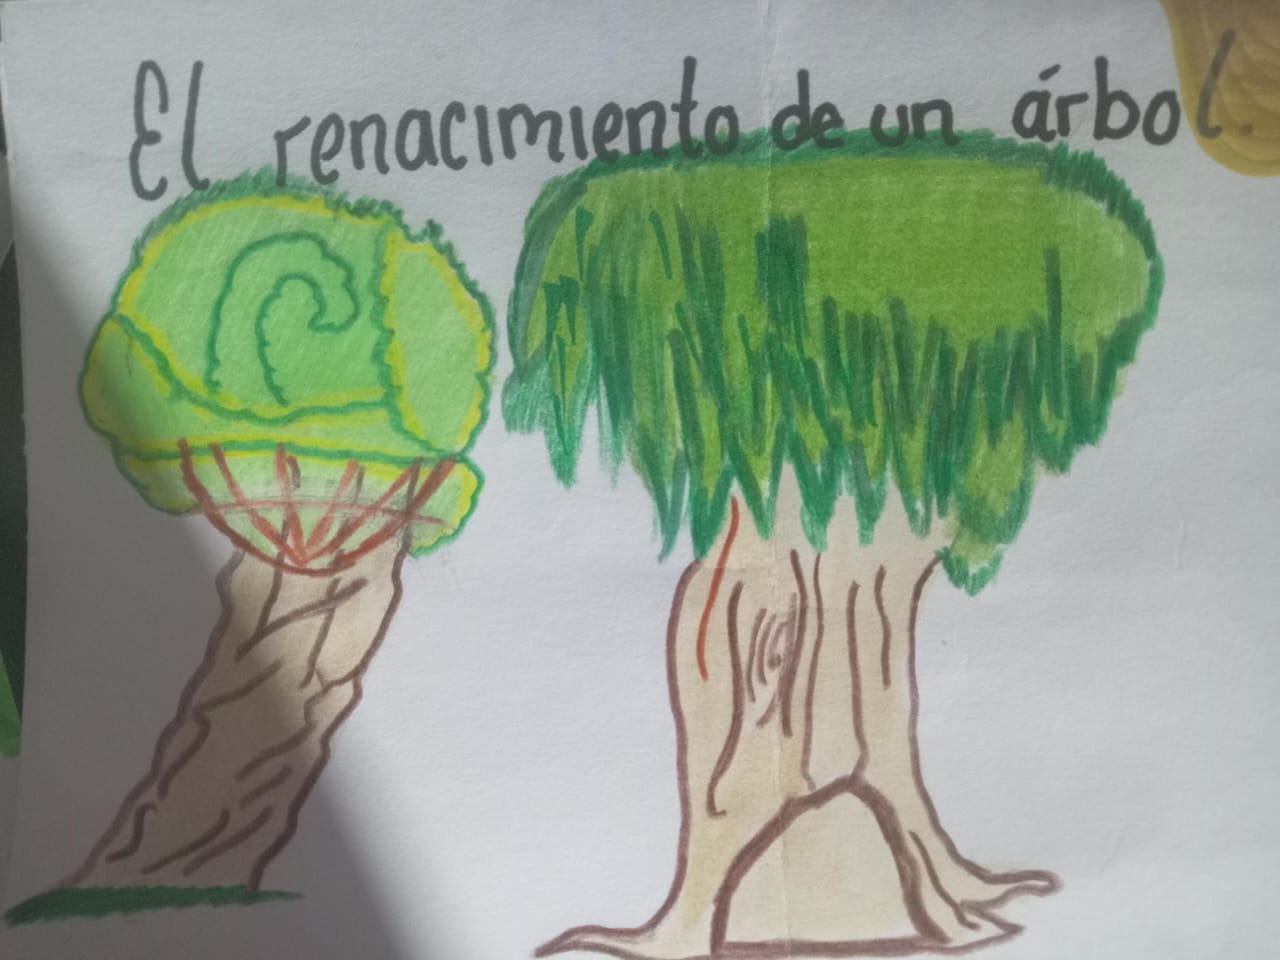 El renacimiento de un árbol.